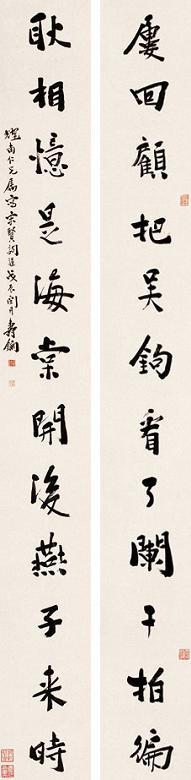 屢回顧把吴鉤看了闌干拍徧
耿相憶是海棠開後燕子来時
南仁兄屬寫宋賢詞戊辰閏月壽